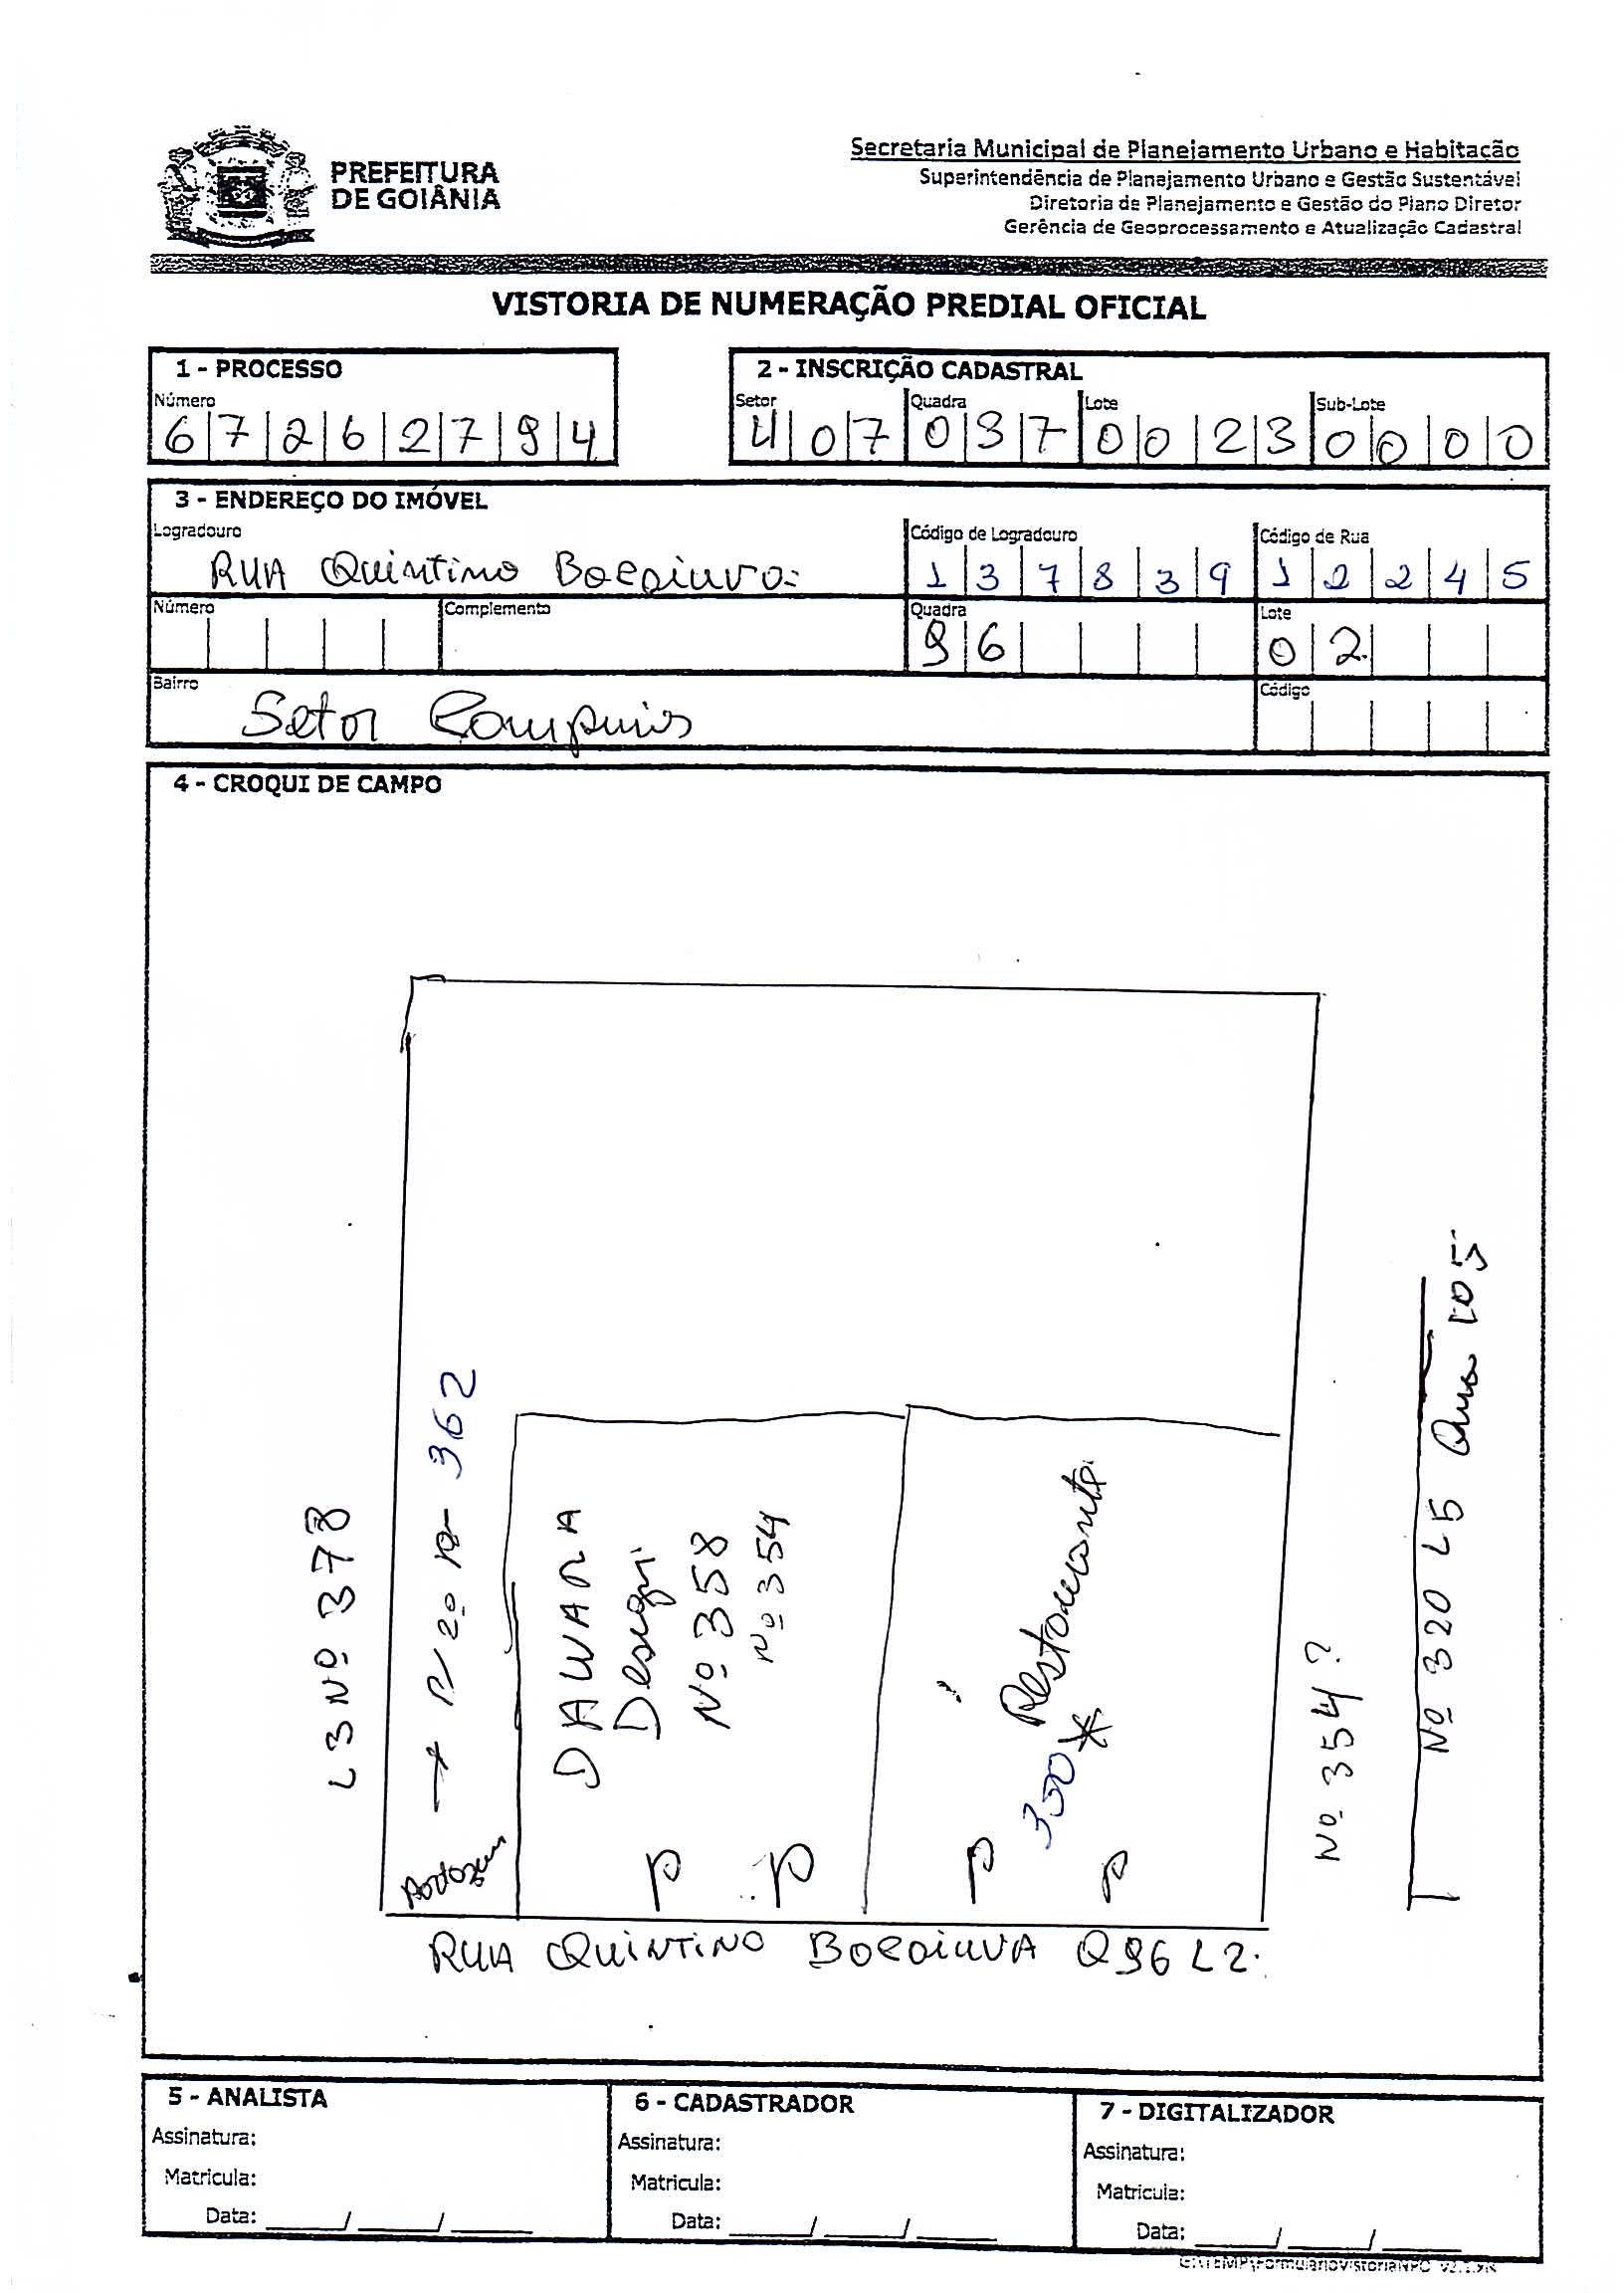 PREFEITURA
DE GOIÂNIA
Secretaria Municipal de Planejamento Urbano e Habitação
Superintendência de Planejamento Urbano e Gestão Sustentável
Diretoria de Planejamento e Gestão do Plano Diretor
Gerência de Geoprocessamento e Atualização Cadastral
VISTORIA DE NUMERAÇÃO PREDIAL OFICIAL
1 - PROCESSO
Número
6 7 2 6 2 7 9 4
2 - INSCRIÇÃO CADASTRAL
Setor Quadra Lote Sub-Lote
4 0 7 0 3 7 0 0 2 3 0 0 0 0
3 - ENDEREÇO DO IMÓVEL
Logradouro Código de Logradouro Código de Rua
RUA Quintino Bocaiuva 1 3 7 8 3 9 1 2 2 4 5
Número Complemento Quadra Lote
96 02
Bairro Código
Setor Campinas
4 - CROQUI DE CAMPO
L3 Nº 378
362
DAWARA
Design
Nº 358
Nº 354
Restaurante
350 *
Nº 354 ?
Nº 320 L5
105
P P P P
RUA QUINTINO BOCAIUVA Q96 L2.
5 - ANALISTA
Assinatura:
Matricula:
Data: ____/____/____
6 - CADASTRADOR
Assinatura:
Matricula:
Data: ____/____/____
7 - DIGITALIZADOR
Assinatura:
Matricula:
Data: ____/____/____